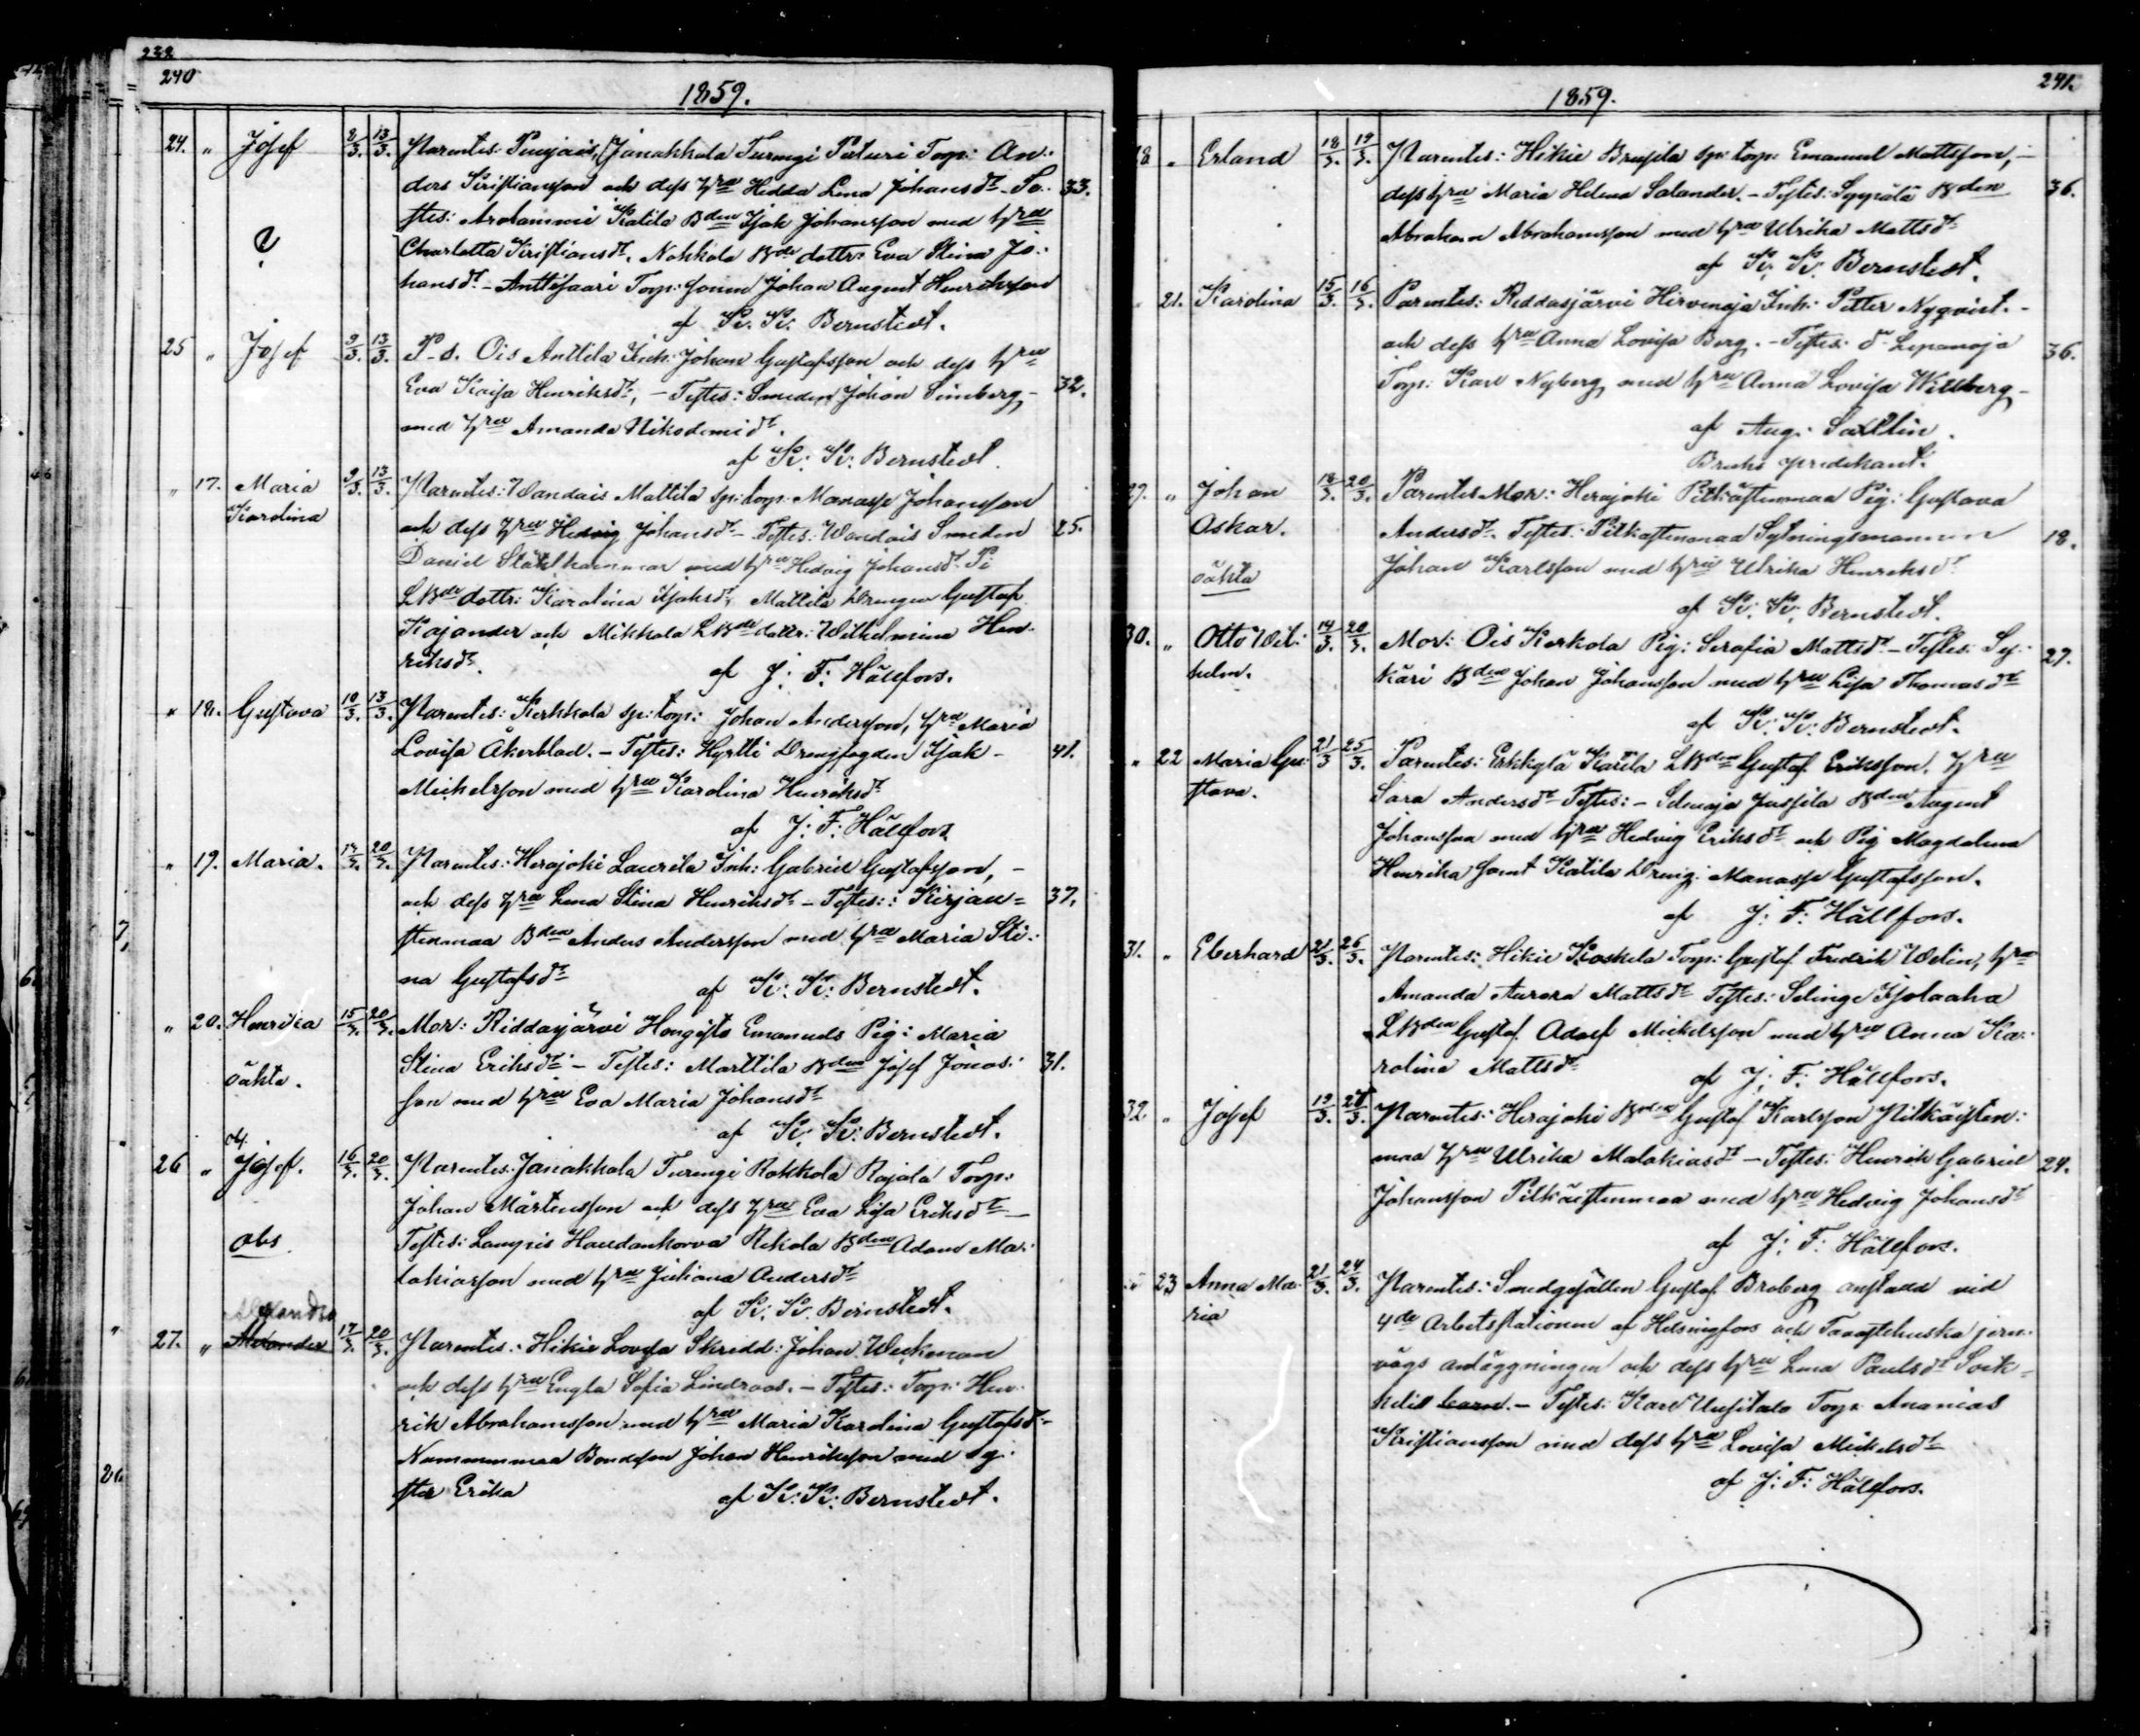 232
240
1859.
24. " Josef 8/3. 13/3. Parentes: Puujais, Janakkala Turengi Peturi Torp: An-
ders Kristiansson och dess hru Hedda Lena Johansdr - Te- 33.
stes: Katila Bden Isak Johansson med hru
Charlotta Kristiansdr. Nokkola Bde dottr: Eva Stina Jo-
hansdr - Anttisaari Torp: sonen Johan August Henriksson
af K: K: Bernstedt.
25 " Josef 9/3. 13/3. P-s. Ois Anttila Inh: Johan Gustafsson och dess hru
Eva Kaisa Henriksdr, - Testes: Smeden Johan Simberg - 32.
med hru Amanda Nikodemidr.
af K: K: Bernstedt.
" 17. Maria 9/3. 13/3. Parentes: Wandais Mattila sp: torp: Manasse Johansson
Karolina
och dess hru Hedvig Johansdr - Testes: Wandais Smeden 25.
Daniel Stålhammar med hru Hedvig Johansdr.
LBde dottr: Karolina Isaksdr, Mattila Drengen Gustaf
Kajander och Mikkola LBde dottr: Wilhelmina Hen-
riksdr. af J: F: Hällfors.
" 18. Gustava 10/3. 13/3. Parentes: Kerkkola sp: torp: Johan Andersson, hru Maria
Lovisa Åkerblad. - Testes: Hyrtti Drengfogden Isak - 41.
Mickelsson med hru Karolina Henriksdr
af J: F: Hällfors
" 19. Maria. 14/3. 20/3. Parentes: Herajoki Laurila Inh: Gabriel Gustafsson, -
och dess hru Lena Stina Henriksdr - Testes: Kirjan= 37.
stenmaa Bden Anders Andersson med hru Maria Sti-
na Gustafsdr af K: K: Bernstedt.
" 20. Henrika 15/3. 20/3. Mor: Riddasjärvi Hongisto Emanuels Pig: Maria
Stina Eriksdr - Testes: Marttila Bden Josef Jonas- 31.
oäkta.
son med hru Eva Maria Johansdr
af K: K: Bernstedt.
26 " Josef. 16/3. 20/3. Parentes: Janakkala Turengi Rokkola Rajala Torp:
Johan Mårtensson och dess hru Eva Lisa Eriksdr -
obs
Testes: Lampis Haudankorva Rekola Bden Adam Ma-
lakiasson med hru Juliana Andersdr
af K: K: Bernstedt.
Alexandra
27. " Alexander 17/3. 20/3. Parentes: Hikie Lovisa Skredd: Johan Weckman
och dess hru Engla Sofia Lindroos. - Testes: Torp: Hen-
rik Abrahamsson med hru Maria Karolina Gustafsdr -
Nummenmaa Bondeson Johan Henriksson med sy-
ster Erika af K: K: Bernstedt.
241.
1859.
18 " Erland 18/3. 19/3. Parentes: Hikie Brusila sp: torp: Emanuel Mattsson, -
dess hru Maria Helena Salander. - Testes: Syrjälä Bden 36.
Abraham Abrahamsson med hru Ulrika Mattsdr
af K: K: Bernstedt.
" 21. Karolina 15/3. 16/3. Parentes: Riddasjärvi Hirvenoja Inh: Petter Nyqvist. -
och dess hru Anna Lovisa Berg. - Testes: Lepanoja 36.
Torp: Karl Nyberg med hru Anna Lovisa Willberg -
af Aug: Saxlin.
Bruks predikant.
29. " Johan 18/3. 20/3. Parentes Mor: Herajoki Pitkästenmaa Pig: Gustava
Oskar.
Andersdr. Testes: Pitkästenmaa Sytningsmannen 18.
oäkta
Johan Karlsson med hru Ulrika Henriksdr
af K: K: Bernstedt.
30. " Otto Wil- 14/3. 20/3. Mor: Ois Kerkola Pig: Serafia Mattsdr - Testes: Sy- 29.
helm.
käri Bden Johan Johansson med hru Lisa Thomasdr
af K: K: Bernstedt.
" 22 Maria Gu- 21/3 25/3. Parentes: Erkkylä Katila LBden Gustaf Eriksson, hru
stava.
Sara Andersdr Testes: - Selenoja Jussila Bden August
Johansson med hru Hedvig Eriksdr och Pig Magdalena
Henrika samt Katila Dreng: Manasse Gustafsson.
af J: F: Hällfors.
31. " Eberhard 21/3. 26/3. Parentes: Hikie Koskela Torp: Gustaf Fredrik Welin, hru
Amanda Aurora Mattsdr Testes: Selinge Isolaaha
LBden Gustaf Adolf Mickelsson med hru Anna Ka-
rolina Mattsdr af J: F: Hällfors.
32 " Josef 19/3. 27/3. Parentes: Herajoki Bden Gustaf Karlsson Pitkästen-
maa hru Ulrika Malakiasdr - Testes: Henrik Gabriel 24.
Johansson Pitkästenmaa med hru Hedvig Johansdr
af J: F: Hällfors.
" 23 Anna Ma- 21/3. 24/3. Parentes: Smedgesällen Gustaf Broberg anställd vid
ria
4de Arbetsstationen af Helsingfors och Tavastehuska jern-
vägs anläggningen och dess hru Lena Paulsdr Soik-
kelis barn. - Testes: Karl Uusitalo Torp. Ananias
Kristiansson med dess hru Lovisa Mickelsdr
af J: F: Hällfors.